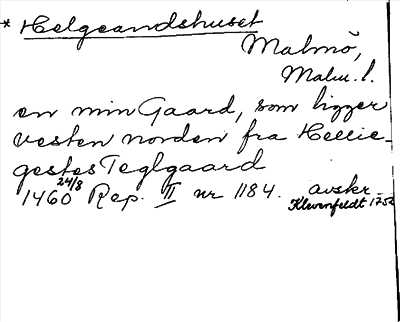 * Helgeandshuset
Malmö,
Malm. l.
en min Gaard, som ligger
vesten norden fra Hellie-
gestes Teglgaard
1460 24/8 Rep. II nr 1184. avskr.
Klevenfeldt 1752